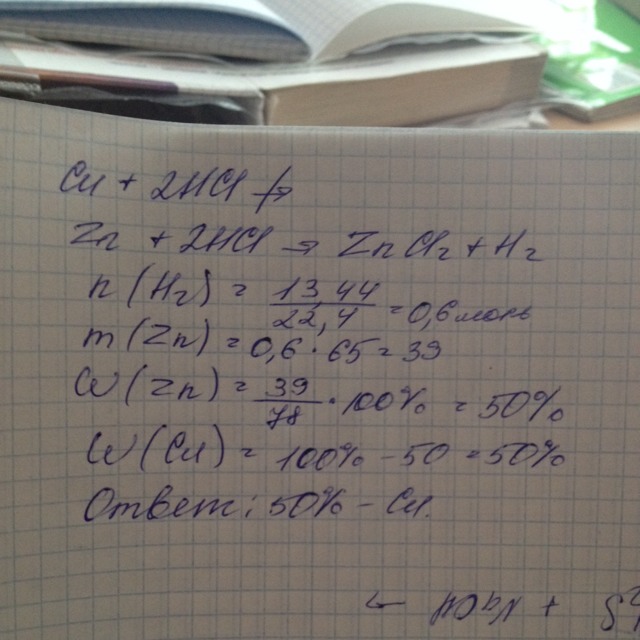 Cu + 2HCl ↛
Zn + 2HCl → ZnCl₂ + H₂
n(H₂) = 13,44/22,4 = 0,6 моль
m(Zn) = 0,6 · 65 = 39
W(Zn) = 39/78 · 100% = 50%
W(Cu) = 100% - 50 = 50%
Ответ: 50% - Cu.
+ NaOH →